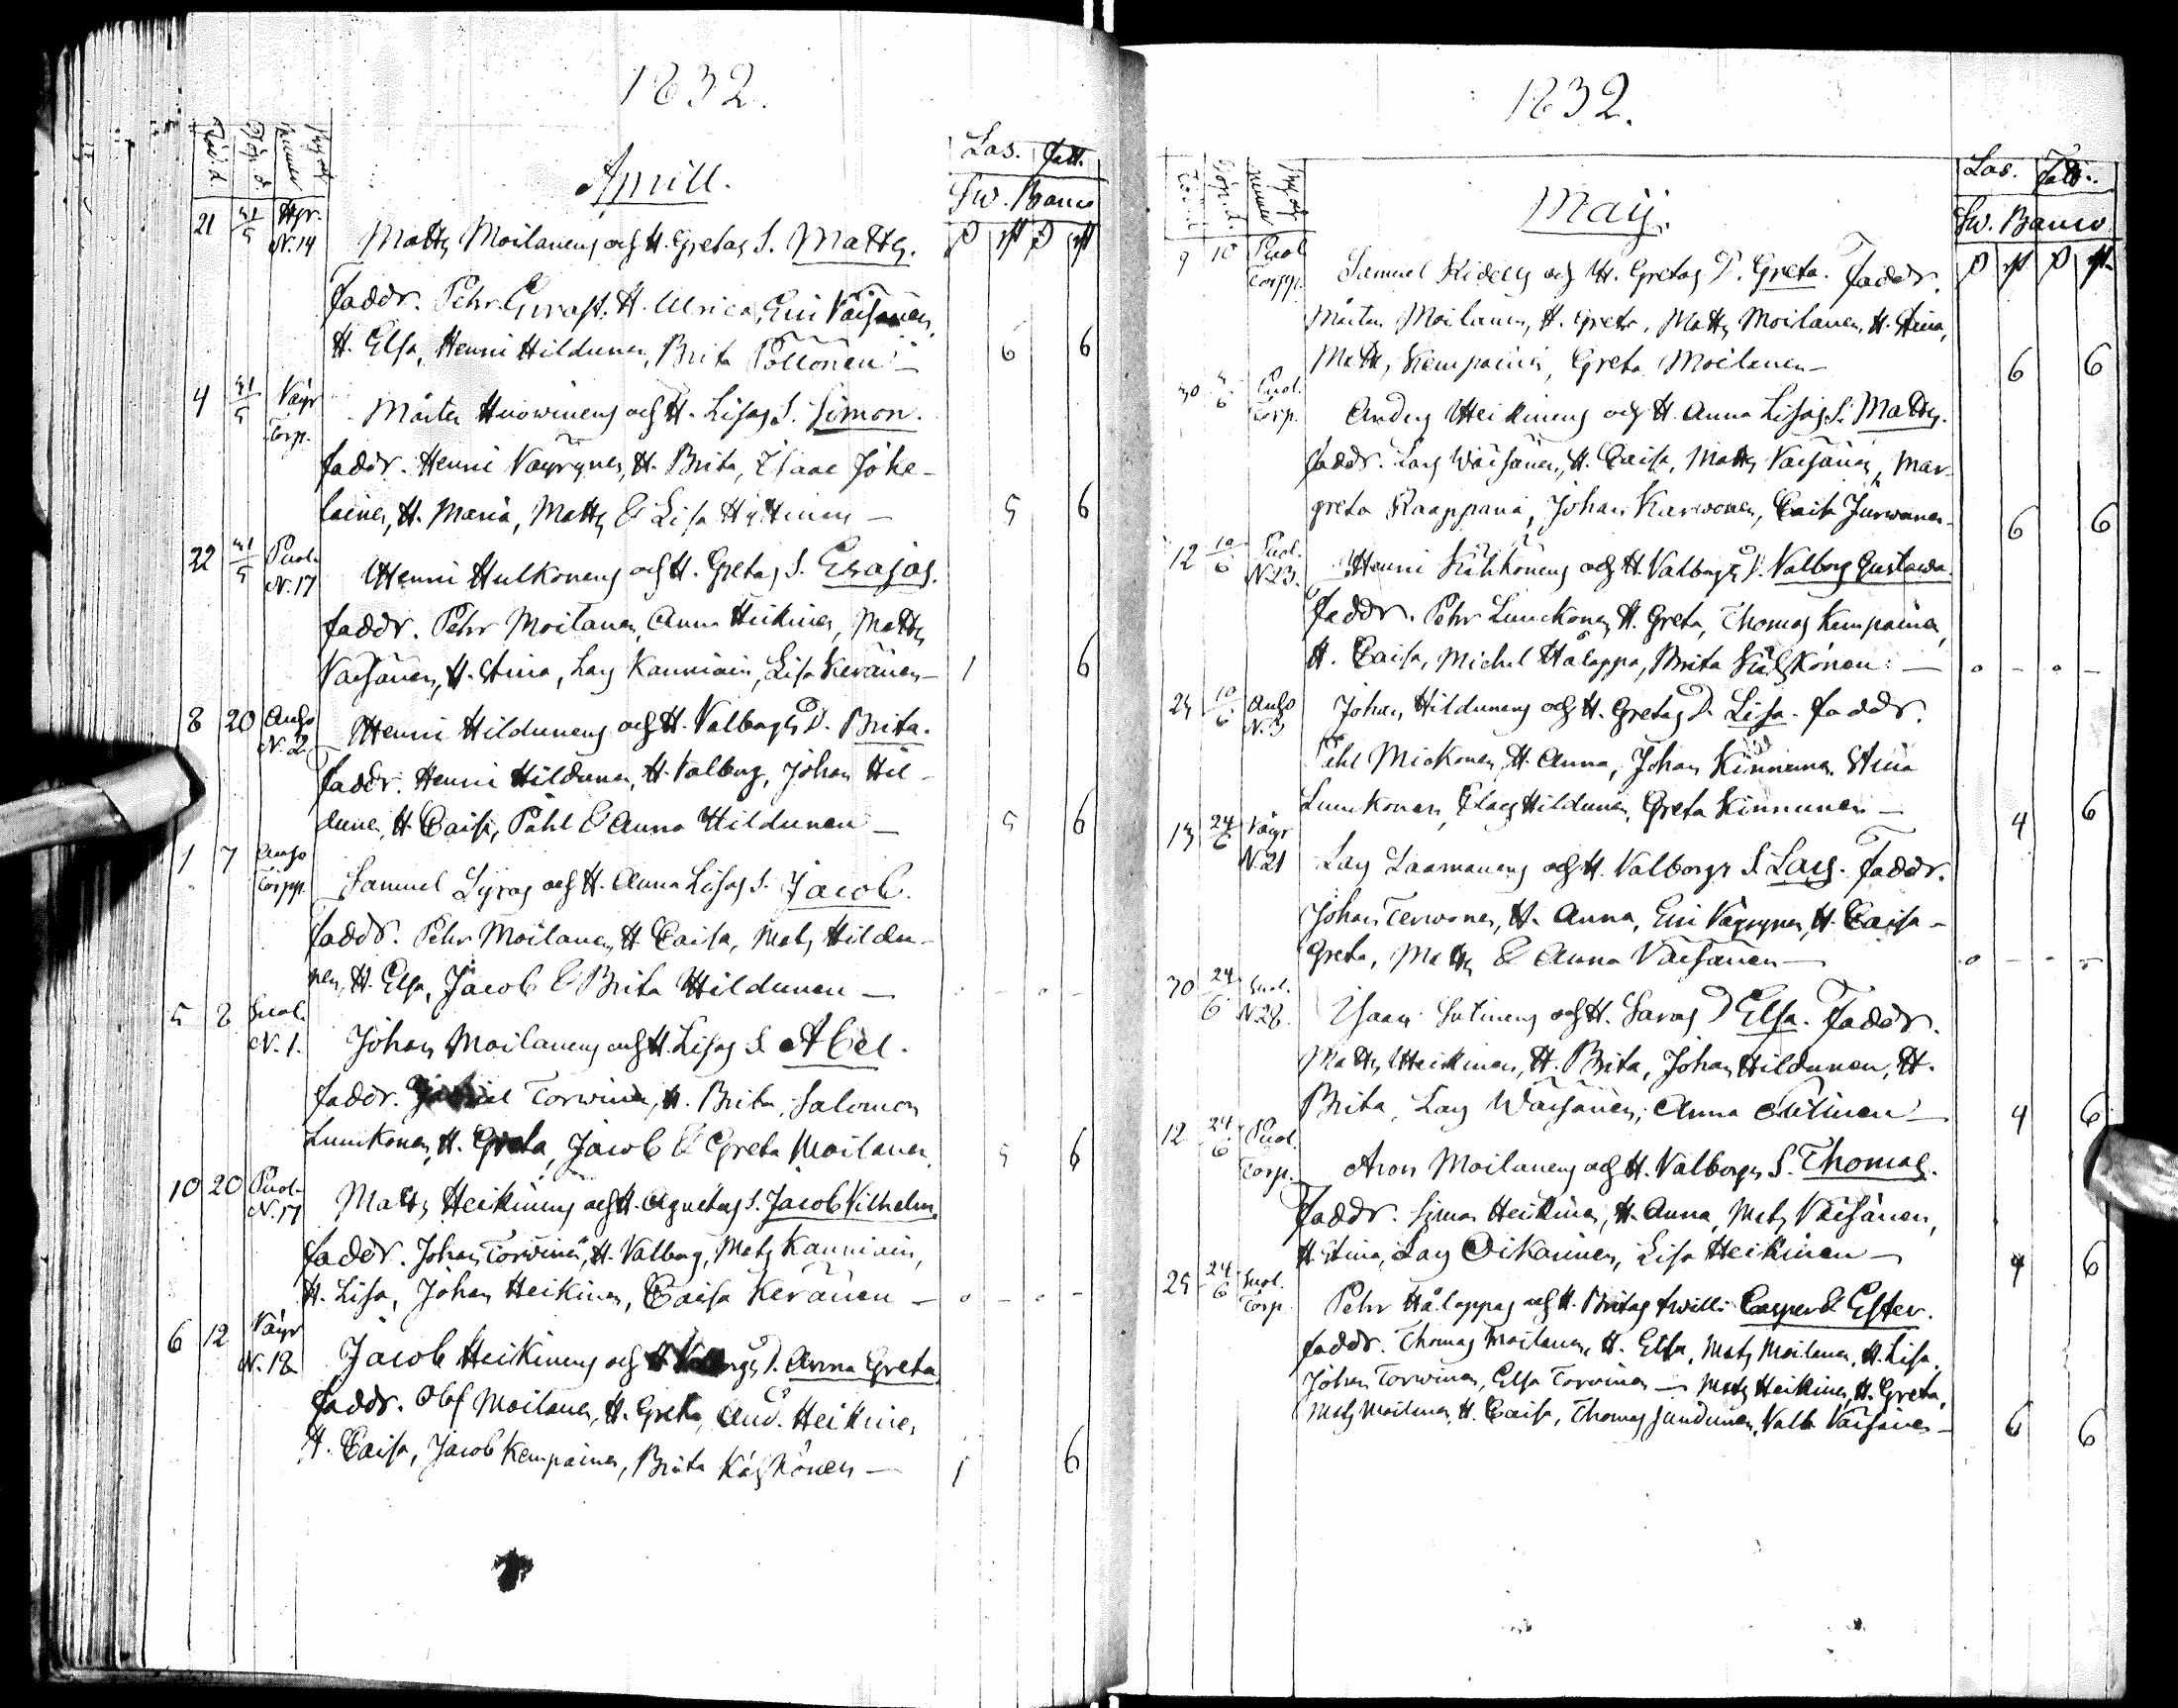 1832.
Född. d. Döp. d. By och nummer
Aprill.
Las. fatt.
Sw. Banco
21 31/5 Hyr. N. 14 Matts Moilanens och H. Gretas S. Matts.
faddr. Pehr H. Ulrica, Eric Väisänen,
H. Elsa, Henric Hildunen, Brita Pöllönen — 6 6
4 31/5 Väyr Torp. Mårten Huowinens och H. Lisas S. Simon.
faddr. Henric Väyrynen, H. Brita, Isaac Joke-
lainen, H. Maria, Matts & Lisa Hyttinen — 5 6
22 31/5 Puol. N. 17 Henric Hulkonens och H. Gretas S. Esajas.
faddr. Pehr Moilanen, Anna Heikinen, Matts
Väisänen, H. Stina, Lars Kanniain, Lisa Keränen — 1 6
8 20 Ansio N. 2 Henric Hildunens och H. Valborgs D. Brita.
faddr. Henric Hildunen, H. Valborg, Johan Hil-
dunen, H. Caisa, Påhl & Anna Hildunen — 5 6
1 7 Ansio Torpp. Samuel Lyras och H. Anna Lisas S. Jacob.
faddr. Pehr Moilanen, H. Caisa, Mats Hildu-
nen, H. Elsa, Jacob & Brita Hildunen —
5 8 Suol. N. 1. Johan Moilanens och H. Lisas S. Abel.
faddr. Gabriel Torwinen, H. Brita, Salomon
Lunckonen, H. Greta, Jacob & Greta Moilanen. 5 6
10 20 Puol. N. 17 Matts Heikinens och H. Agnetas S. Jacob Vilhelm.
faddr. Johan Torvinen, H. Valborg, Mats Kanniain,
H. Lisa, Johan Heikinen, Caisa Keränen — 0 - 0 -
6 12 Väyr N. 18 Jacob Heikinens och H. Valborgs D. Anna Greta
faddr. Olof Moilanen, H. Greta, And. Heikinen
H. Caisa, Jacob Kempainen, Brita Kähkönen — 1 6
1832.
May.
Las. fatt.
Sw. Banco
9 10 Puol Torpp. Samuel och H. Gretas D. Greta. faddr.
Mårten Moilanen, H. Greta, Matts Moilanen, H. Stina,
Matts Kempainen, Greta Moilanen — 6 6
30 3/6 Puol. Torp. Anders Heikinens och H. Anna Lisas S. Matts.
faddr. Lars Wäisänen, H. Caisa, Matts Väisänen, Mar-
greta Kaappana, Johan Karwonen, Caisa Jurwanen — 6 6
12 10/6 Puol. N. 23. Henric Kähkönens och H. Valborgs D. Valborg Gustava.
faddr. Pehr Lunckonen, H. Greta, Thomas Kempainen,
H. Caisa, Michel Hålappa, Brita Kähkönen: — 0 - 0 -
25 10/6 Ansio N. 3 Johan Hildunens och H. Gretas D. Lisa. faddr.
Påhl Mickonen, H. Anna, Johan Kinnunen, Stina
Lunckonen, Clas Hildunen, Greta Kinnunen — 4 6
13 24/6 Väyr N. 21 Lars Laamanens och H. Valborgs S. Lars. faddr.
Johan Terwonen, H. Anna, Eric Väyrynen, H. Caisa-
Greta, Matts & Anna Väisänen — 0 - - -
30 24/6 Suol. N. 28. Isaac Sutinens och H. Saras D. Elsa. faddr.
Matts Heikinen, H. Brita, Johan Hildunen, H.
Brita, Lars Wäisänen, Anna Sutinen — 4 6
12 24/6 Puol. Torp. Aron Moilanens och H. Valborgs S. Thomas.
faddr. Simon Heikinen, H. Anna, Mats Väisänen,
H. Stina, Lars Oikarinen, Lisa Heikinen — 4 6
25 24/6 Suol. Torp. Pehr Hålappas och H. Britas twill: Casper & Ester.
faddr. Thomas Moilanen, H. Elsa, Mats Moilanen, H. Lisa,
Johan Torwinen, Elsa Torvinen — Mats Heikinen, H. Greta,
Mats Moilanen, H. Caisa, Thomas Jundunen, Valb. Väisänen — 6 6